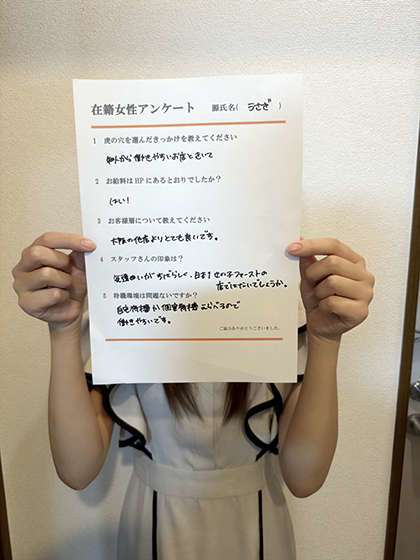 在籍女性アンケート 源氏名( うさぎ )
1 虎の穴を選んだきっかけを教えてください
知人から働きやすいお店ときいて
2 お給料はHPにあるとおりでしたか?
はい!
3 お客様層について教えてください
大阪の他店よりとても良いです。
4 スタッフさんの印象は?
気遣いがすばらしく、日本1 女の子ファーストの
店ではないでしょうか。
5 待機環境は問題ないですか?
自宅待機か個室待機えらべるので
働きやすいです。
ご協力ありがとうございました。